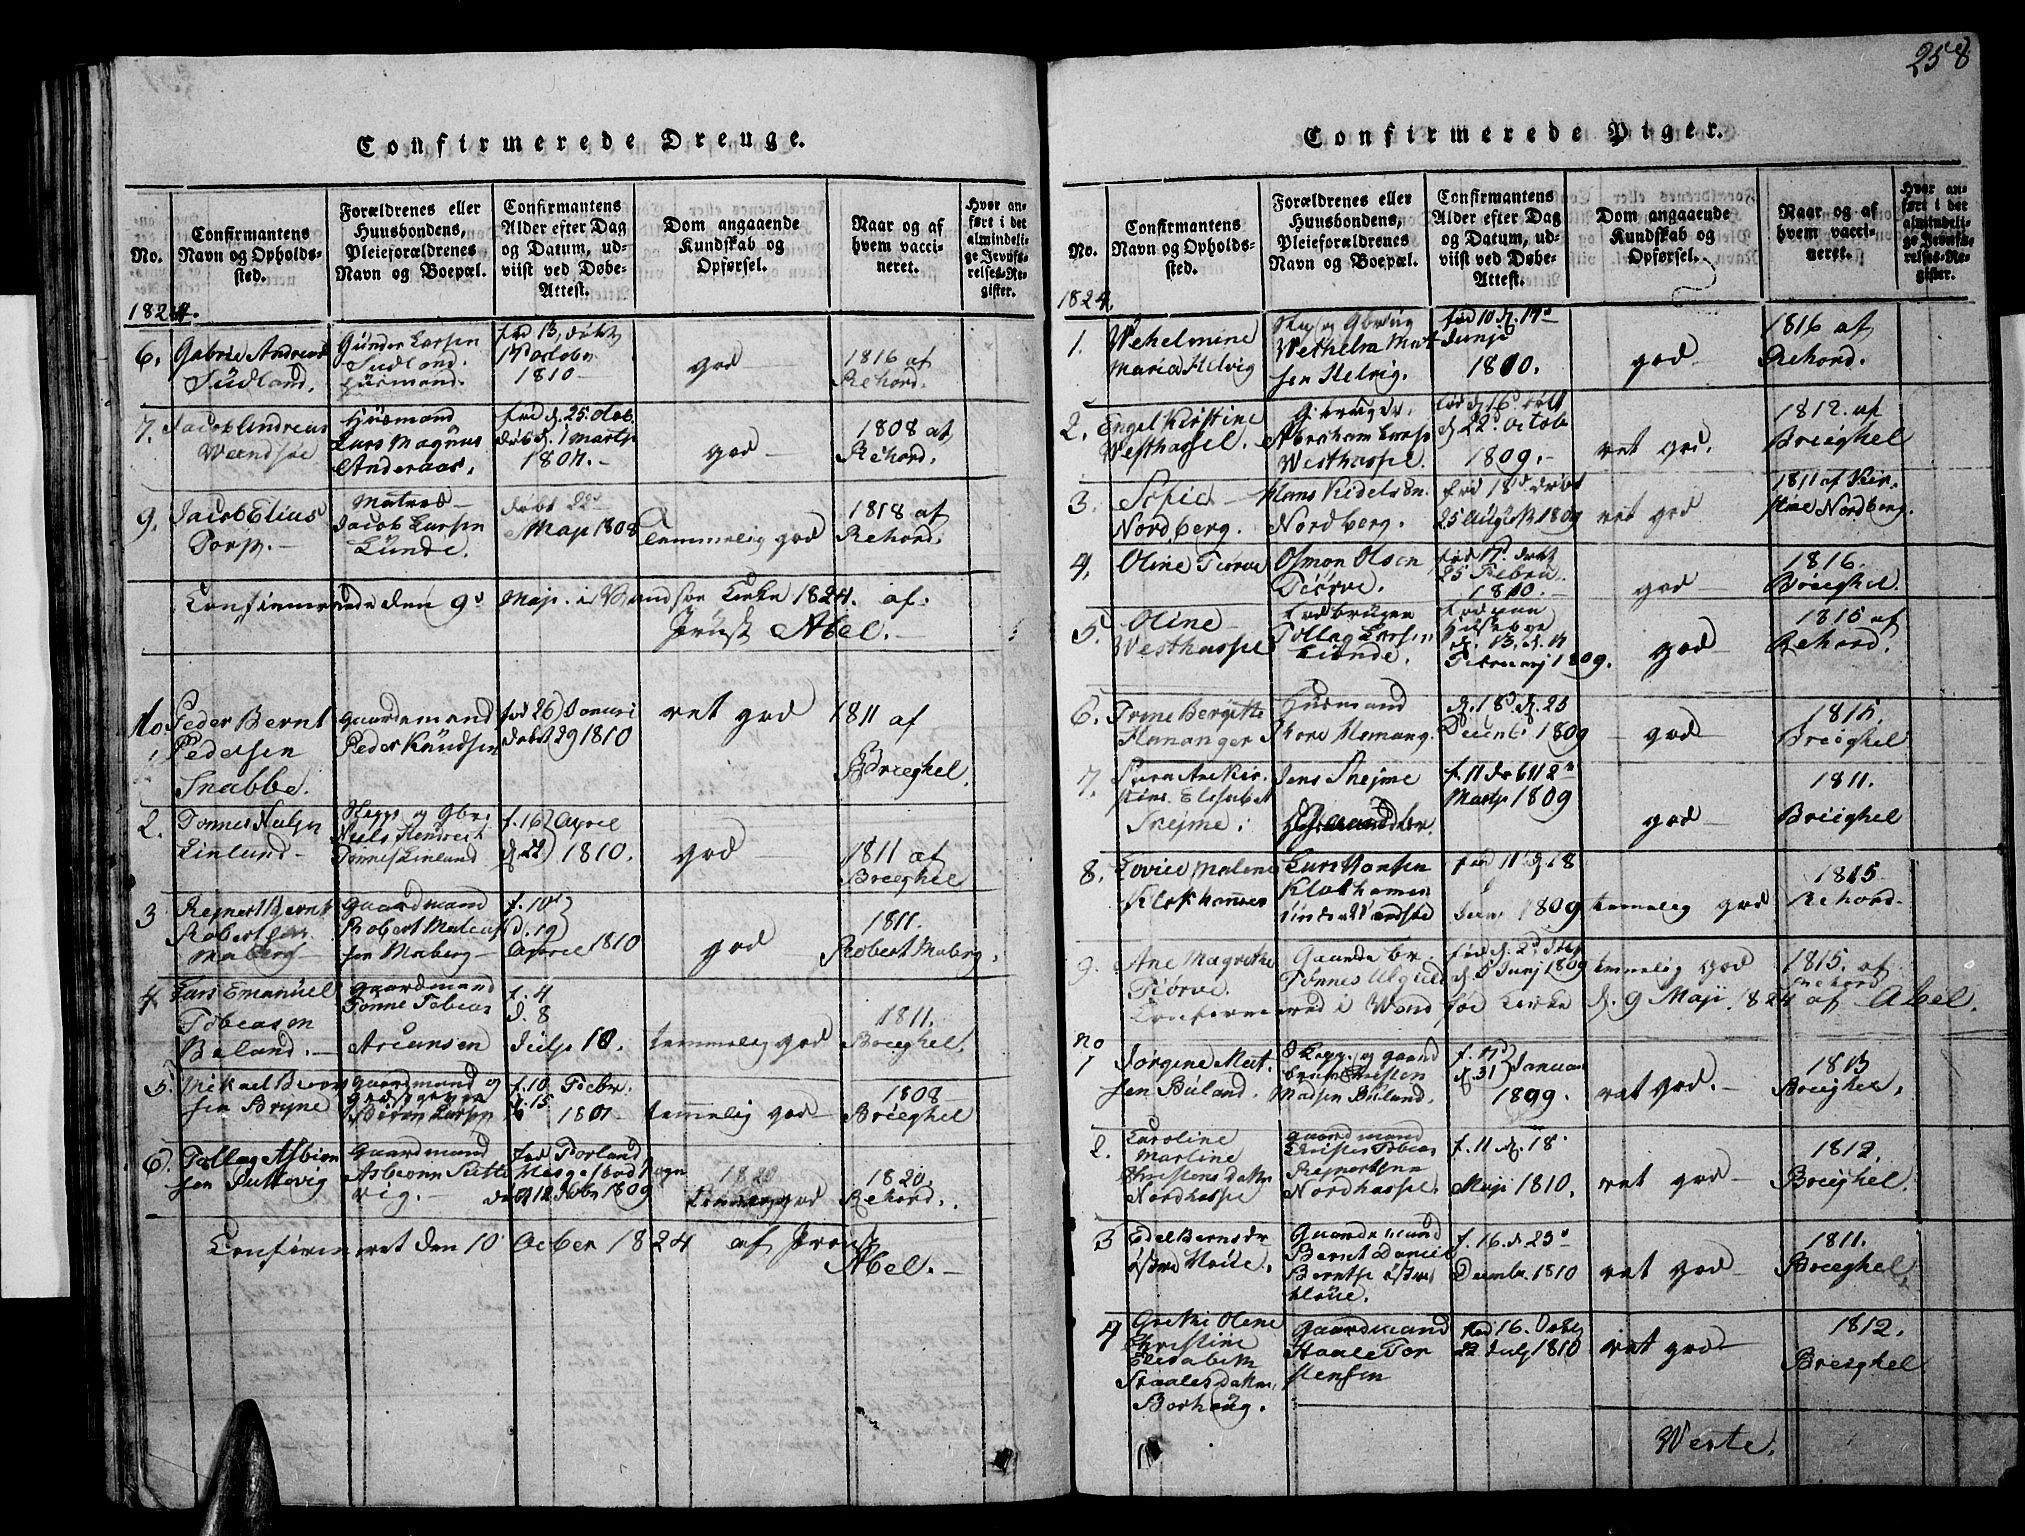 258
Confirmerede Drenge.
No.
Confirmantens
Navn og Opholds-
sted.
Forældrenes eller
Huusbondens,
Pleieforældrenes
Navn og Boepæl.
Confirmantens
Alder efter Dag
og Datum, ud-
viist ved Døbe-
Attest.
Dom angaaende
Kundskab og
Opførsel.
Naar og af
hvem vacci-
neret.
Hvor an-
ført i det
almindeli-
ge Jevnfø-
relses-Re-
gister.
1824.
6. Gabriel Andreas
Sudland.
Gunder Larsen
Sudland.
Huusmand.
fød 13, døbt
17 octobr
1810
god
1816 af
Rehord.
7. Jacob Andreas
Wandsøe
Huusmand
Lars Magnus
Anderaas.
fød d. 25. octob.
døb d. 1 martz
1807.
god
1808 af
Rehord.
9. Jacob Elias
Torp.
Matros
Jacob Larsen
Lunde.
døbt 22
Maji 1808
temmelig god
1818 af
Rehord.
Confirmerede den 9d Maji i Wandsøe Kirke 1824. af.
Prust Abel.
No
1 Peder Bernt
Pedersen
Snabbe.
gaardemand
Peder Knudsen
fød 26 Januari
døbt 29 1810
ret god
1811 af
Brieghel.
2. Tønnes
Linland
Tønnes Linland
f. 16 April
d. 22 1810.
god
1811 af
Brieghel
3 Rejnert Bernt
Robertsen
Maberg
gaardmand
Robert Matias
sen Maberg
f. 10
d. 19
April 1810
god
1811.
Robert Maberg.
4. Lars Emanuel
Tobeasen
Beland.
gaardmand
Tønne Tobeas
f. 4
d. 8
Julji 10.
temmelig god
1811.
Brieghel.
5. Mikael Biørn
sen Bryne
gaardmand og
Biørn Larsen
f. 10 Febr.
d. 15
1807
temmelig god
1808
Brieghel
6. Tollag Asbiørn
sen Puttevig
gaardmand
Asbiørn Putte
vig.
fød Forland
døbt 12 Nobr 1809
1820
temmelig god
1820.
Rehord.
Confirmeret den 10 Octber 1824 af Prost
Abel.
Confirmerede Piger.
No.
Confirmantens
Navn og Opholds-
sted.
Forældrenes eller
Huusbondens,
Pleieforældrenes
Navn og Boepæl.
Confirmantens
Alder efter Dag
og Datum, ud-
viist ved Døbe-
Attest.
Dom angaaende
Kundskab og
Opførsel.
Naar og af
hvem vacci-
neret.
Hvor an-
ført i det
almindeli-
ge Jevnfø-
relses-Re-
gister.
1824.
1. Wehelmine
Maria Helvig
Skip og Gbrug
Wethelm Mat
sen Helvig.
fød 10 d. 17
Junji
1810.
god
1816 af
Rehord.
2. Engel Kirstine
Westhassel.
G. bruger.
Abraham Lars
Westhassel.
fød d. 16. døbt
d. 22 octob
1809.
ret god.
1812. af
Brieghel
3. Sofie
Nordberg.
Hans Kidelsen.
Nordberg.
fød 18d døbt
25 August 1809
ret god
1811 af Kir
stine Nordberg.
4. Oline Tiørve
Osmon Olsen
Tiørve.
fød 17. døbt
25 Febru
1810.
god
1816.
Brieghel.
5. Oline
Westhassel
Tollag Larsen
Lunde.
d. 13, d. 17
Februarj 1809.
god
1815 af
Rehord.
6. Trine Bergitte
Hananger
Huusmand
Thore Hanang.
d. 18d d. 25
Decemb. 1809
god
1815.
Brieghel
7. Sara Ane Kir
stine Elisabet
Snejme.
Jens Snejme
f. 11 døbt 12
Martz 1809
god
1811.
Brieghel
8. Lovise Malene
Klokhammer
Lars Hansen
Klokhammer
under Wandsøe
fød 11 d. 18
1809
temmelig god
1815
Rehord.
9. Ane Magrethe
Tiørve.
Gaarde br.
Tønnes
fød d. 2d døbt
d. 5 Junj 1809
temmelig god
1815. af
Rehord
Confirmered i Wandsøe Kirke d. 9 Maji 1824 af Abel.
No
1 Jorgine Mat
sen Buland.
Skipp. og gaard
brum Kristen
Madsen Buland.
f. 17 Januar
d. 31
1809.
ret god.
1813
Brieghel.
2. Karoline
Martine
Christens Datter
Nordhassel
gaardmand
Christen Tobias
Rejnertsen
Nordhassel.
f. 11 d. 18
Maji 1810.
ret god
1812.
Brieghel.
3 Edel Berns dr
østre Hoie.
Gaardemand
Bernt Daniel
Berntse østre
Høie.
f. 16. d 23
Decembr. 1810
ret god
1811.
Brieghel.
4 Grethe Olene
Christine
Elisabeth
Staales Datter
Borhaug.
Gaardmand
Staale Tor
stensen
fød 16. Døbt
22 Julj 1810
ret god
1812.
Brieghel
Werte.